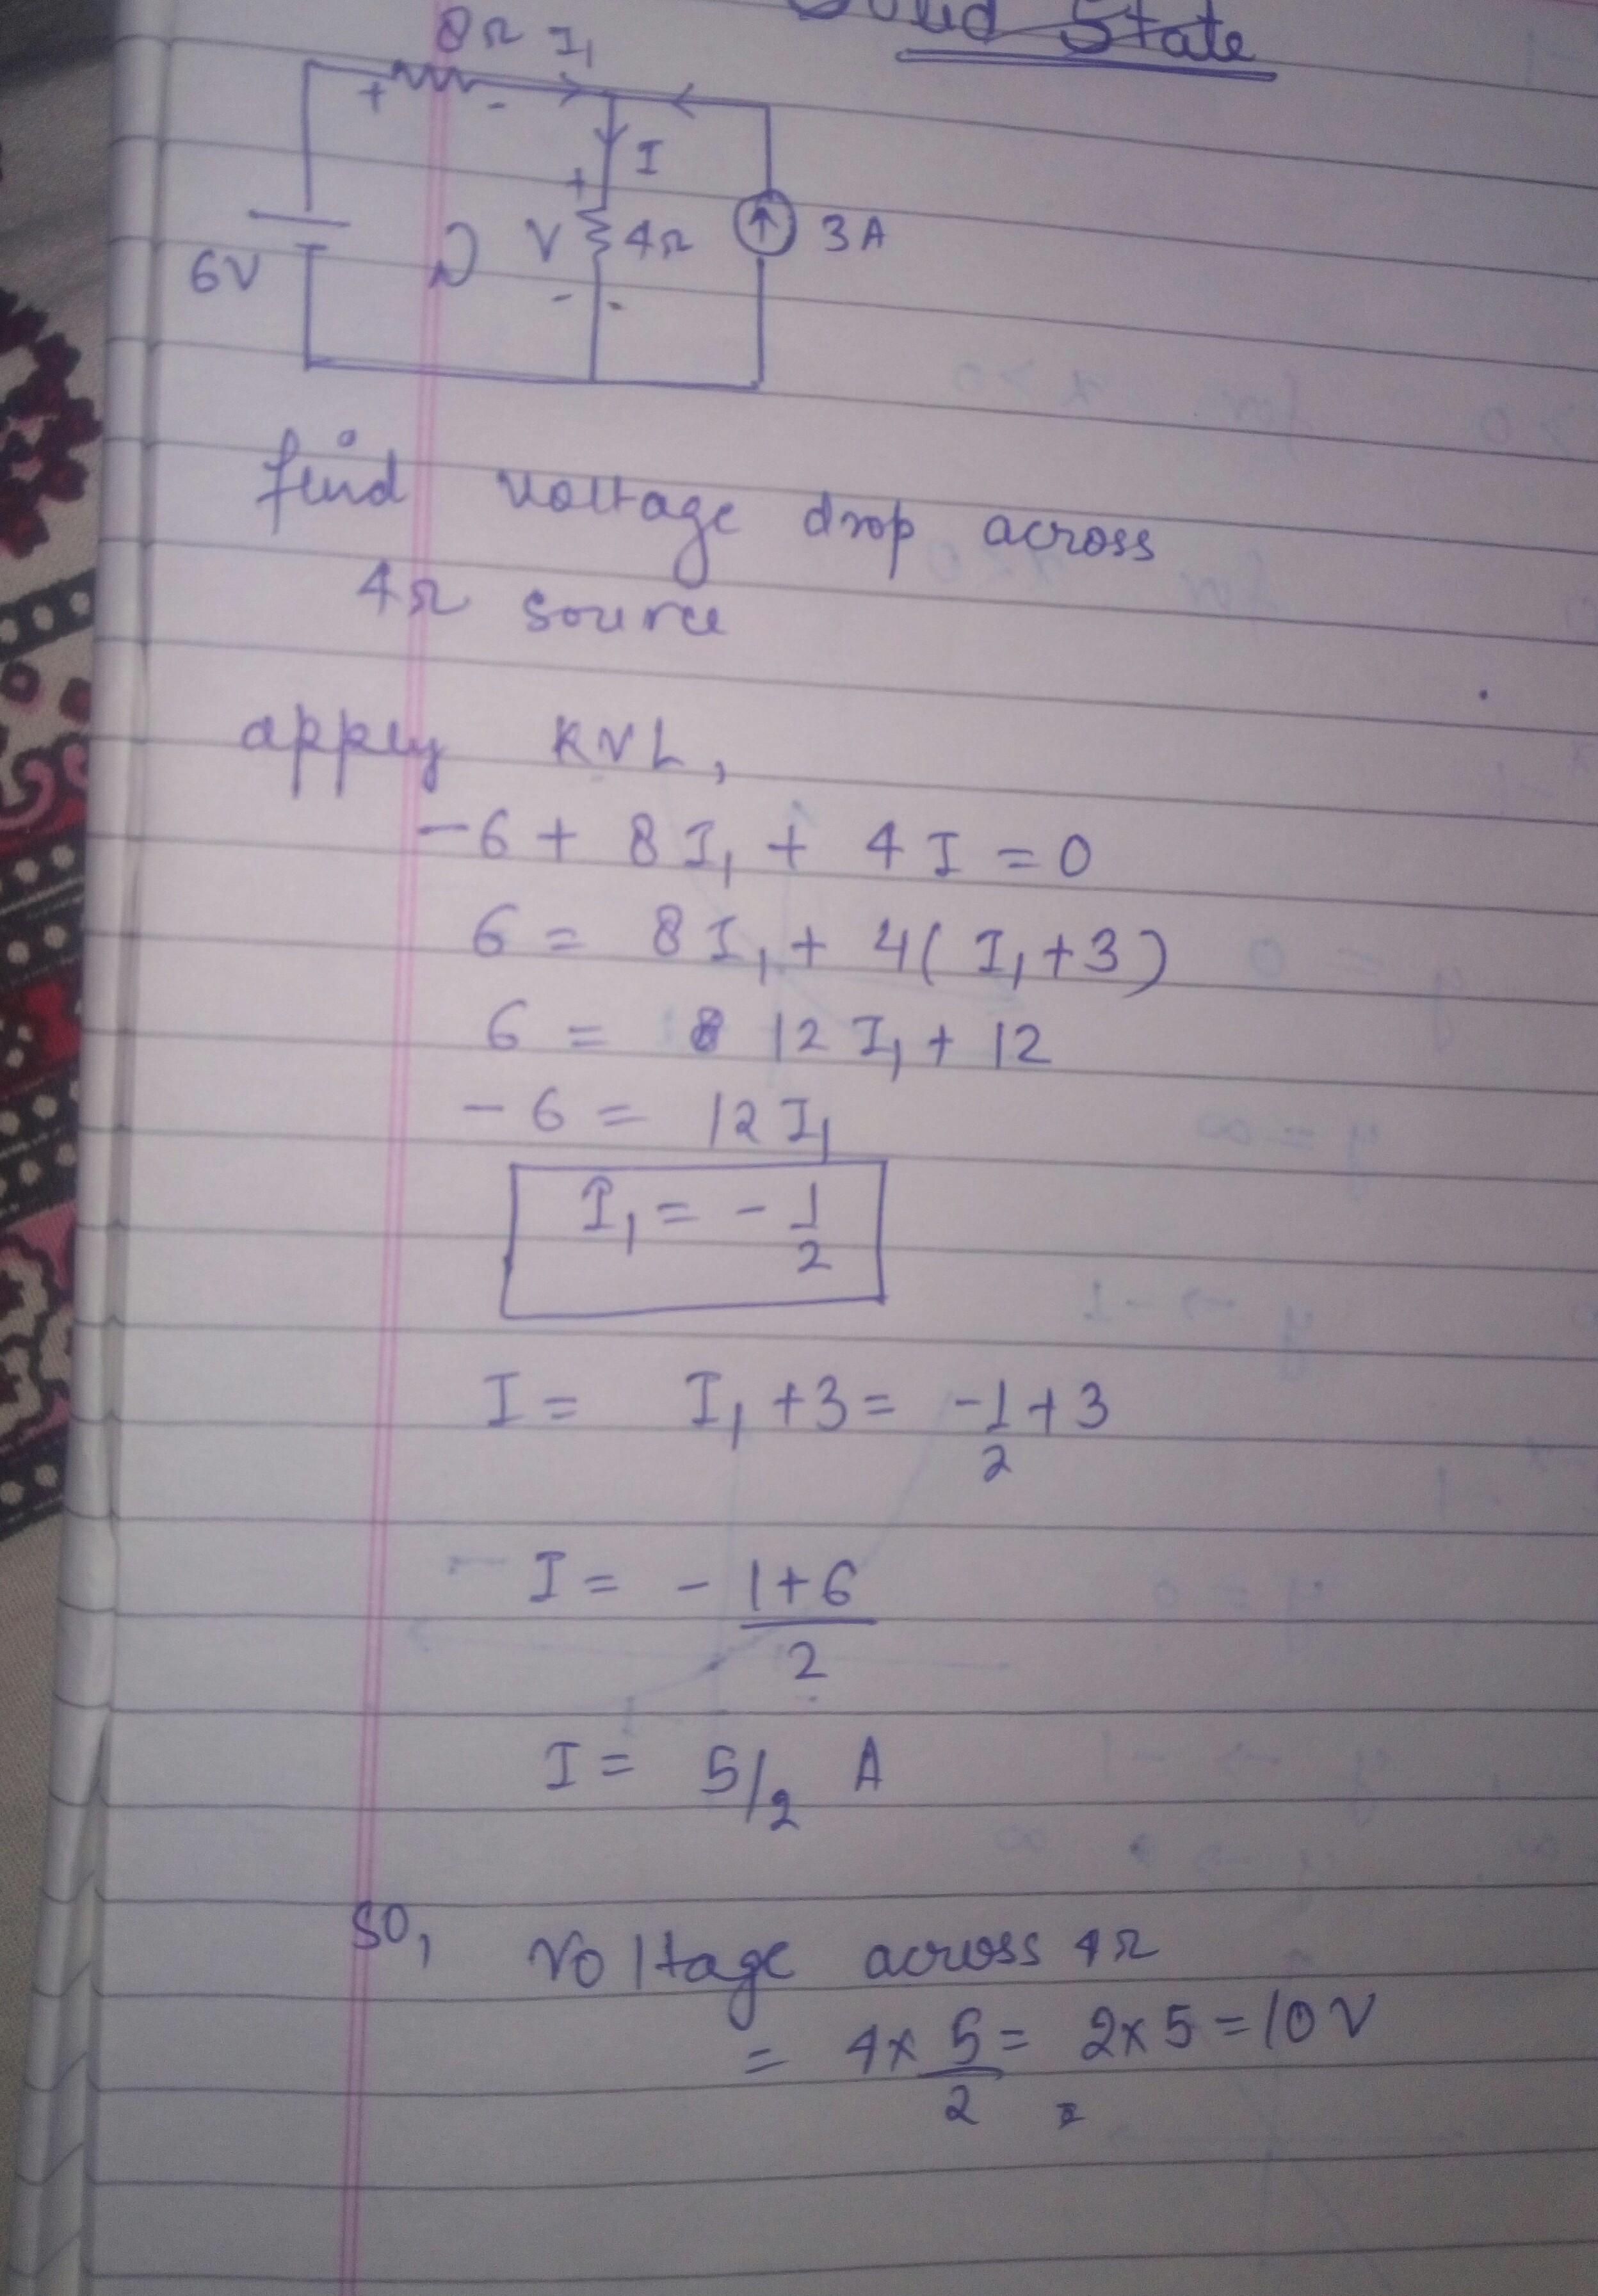 Solid State
8Ω I₁
+ -
I
+
6V V 4Ω 3A
- -
find voltage drop across
4Ω source
apply KVL,
-6 + 8I₁ + 4I = 0
6 = 8I₁ + 4(I₁+3)
6 = 12I₁ + 12
-6 = 12I₁
I₁ = -1/2
I = I₁+3 = -1/2+3
I = -1+6/2
I = 5/2 A
SO, Voltage across 4Ω
= 4×5/2 = 2×5=10V